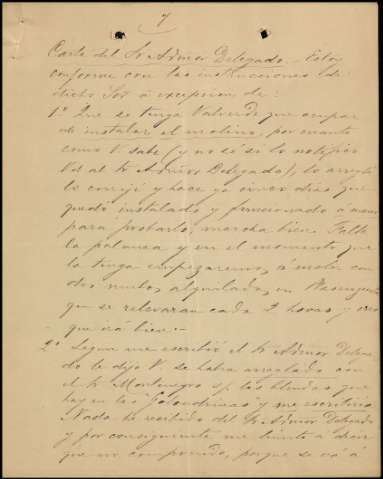 7
Carta del Sr Admor Delegado. Estoy
conforme con las instrucciones de
dicho Sor á excepcion de:
1º Que se tenga Valverde que ocupar
de instalar el molino, por cuanto
como V. sabe (y no sé si lo notificó
Vd al Sr Admor Delegado), lo arreglé
lo correjí y hace ya cinco dias que
quedó instalado y funcionado á mano
para probarlo; marcha bien. Falta
la palanca y en el momento que
la tenga empezaremos, á moler con
dos mulos, alquilados, en
que se relevaran cada 2 horas y creo
que irá bien.-
2º Segun me escribió el Sr Admor Delega-
do le dijo V. se habia arreglado con
el Sr Montenegro s/ las blendas que
hay en las Golondrinas y me escribiria
Nada he recibido del Sr Admor Delegado
y por consiguiente me limito á decir
que no comprendo, porque se vá á